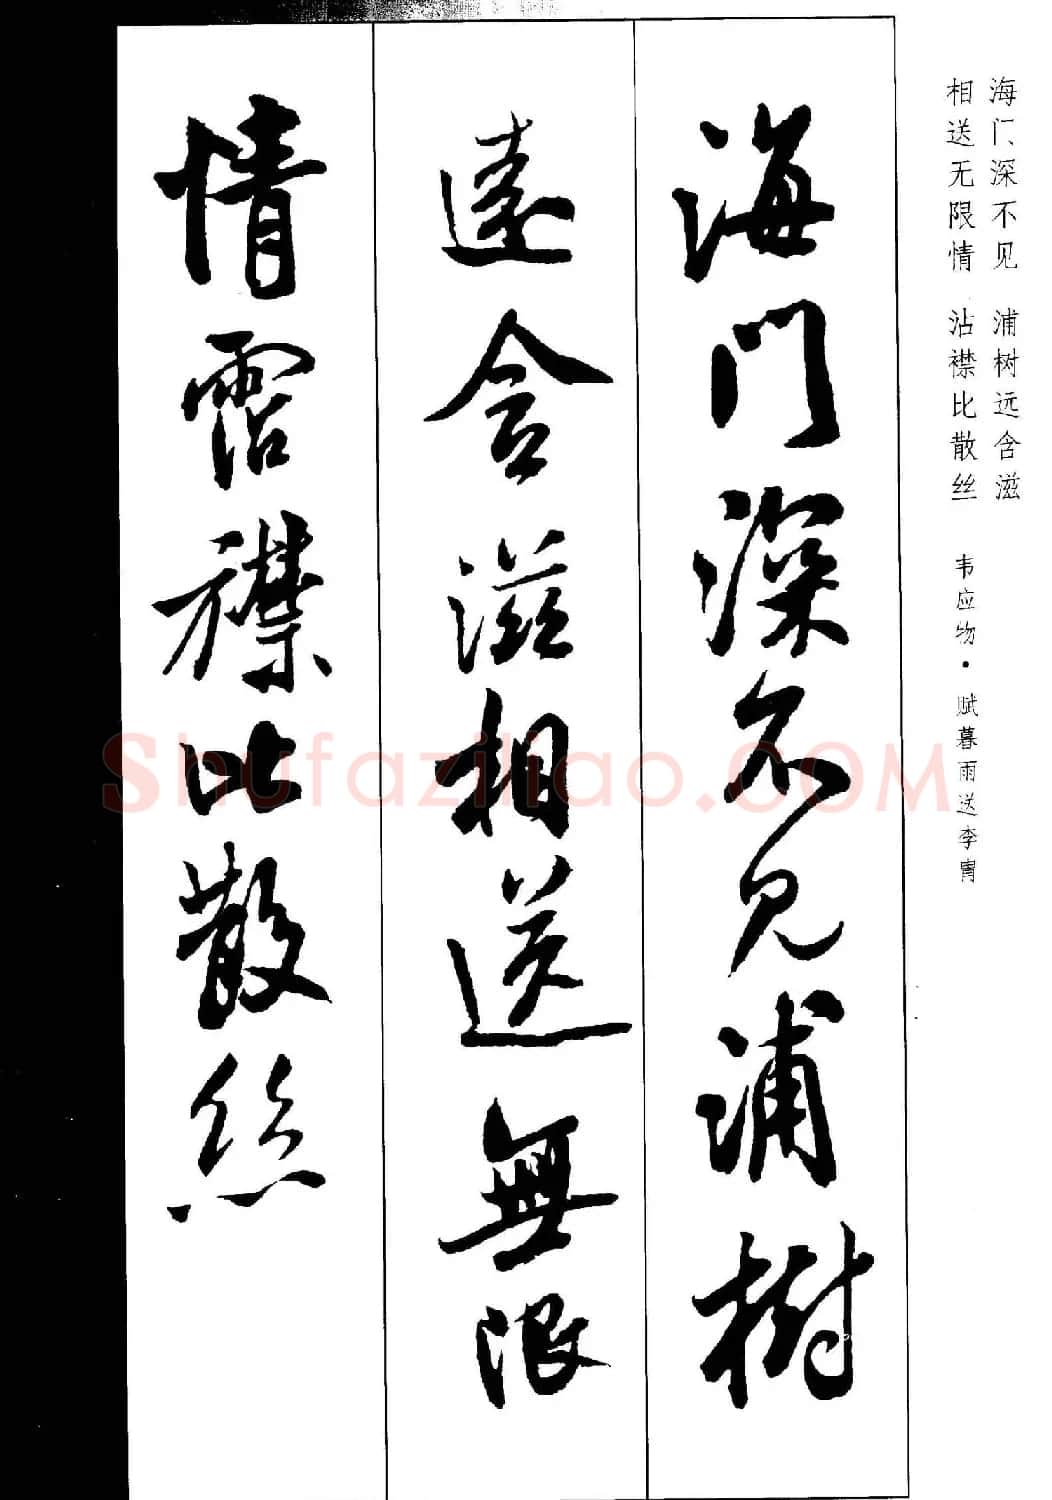 海门深不见 浦树远含滋
相送无限情 沾襟比散丝
韦应物·赋暮雨送李胄
海門深不見浦樹
遠含滋相送無限
情霑襟比散絲
Shufaziliao.COM